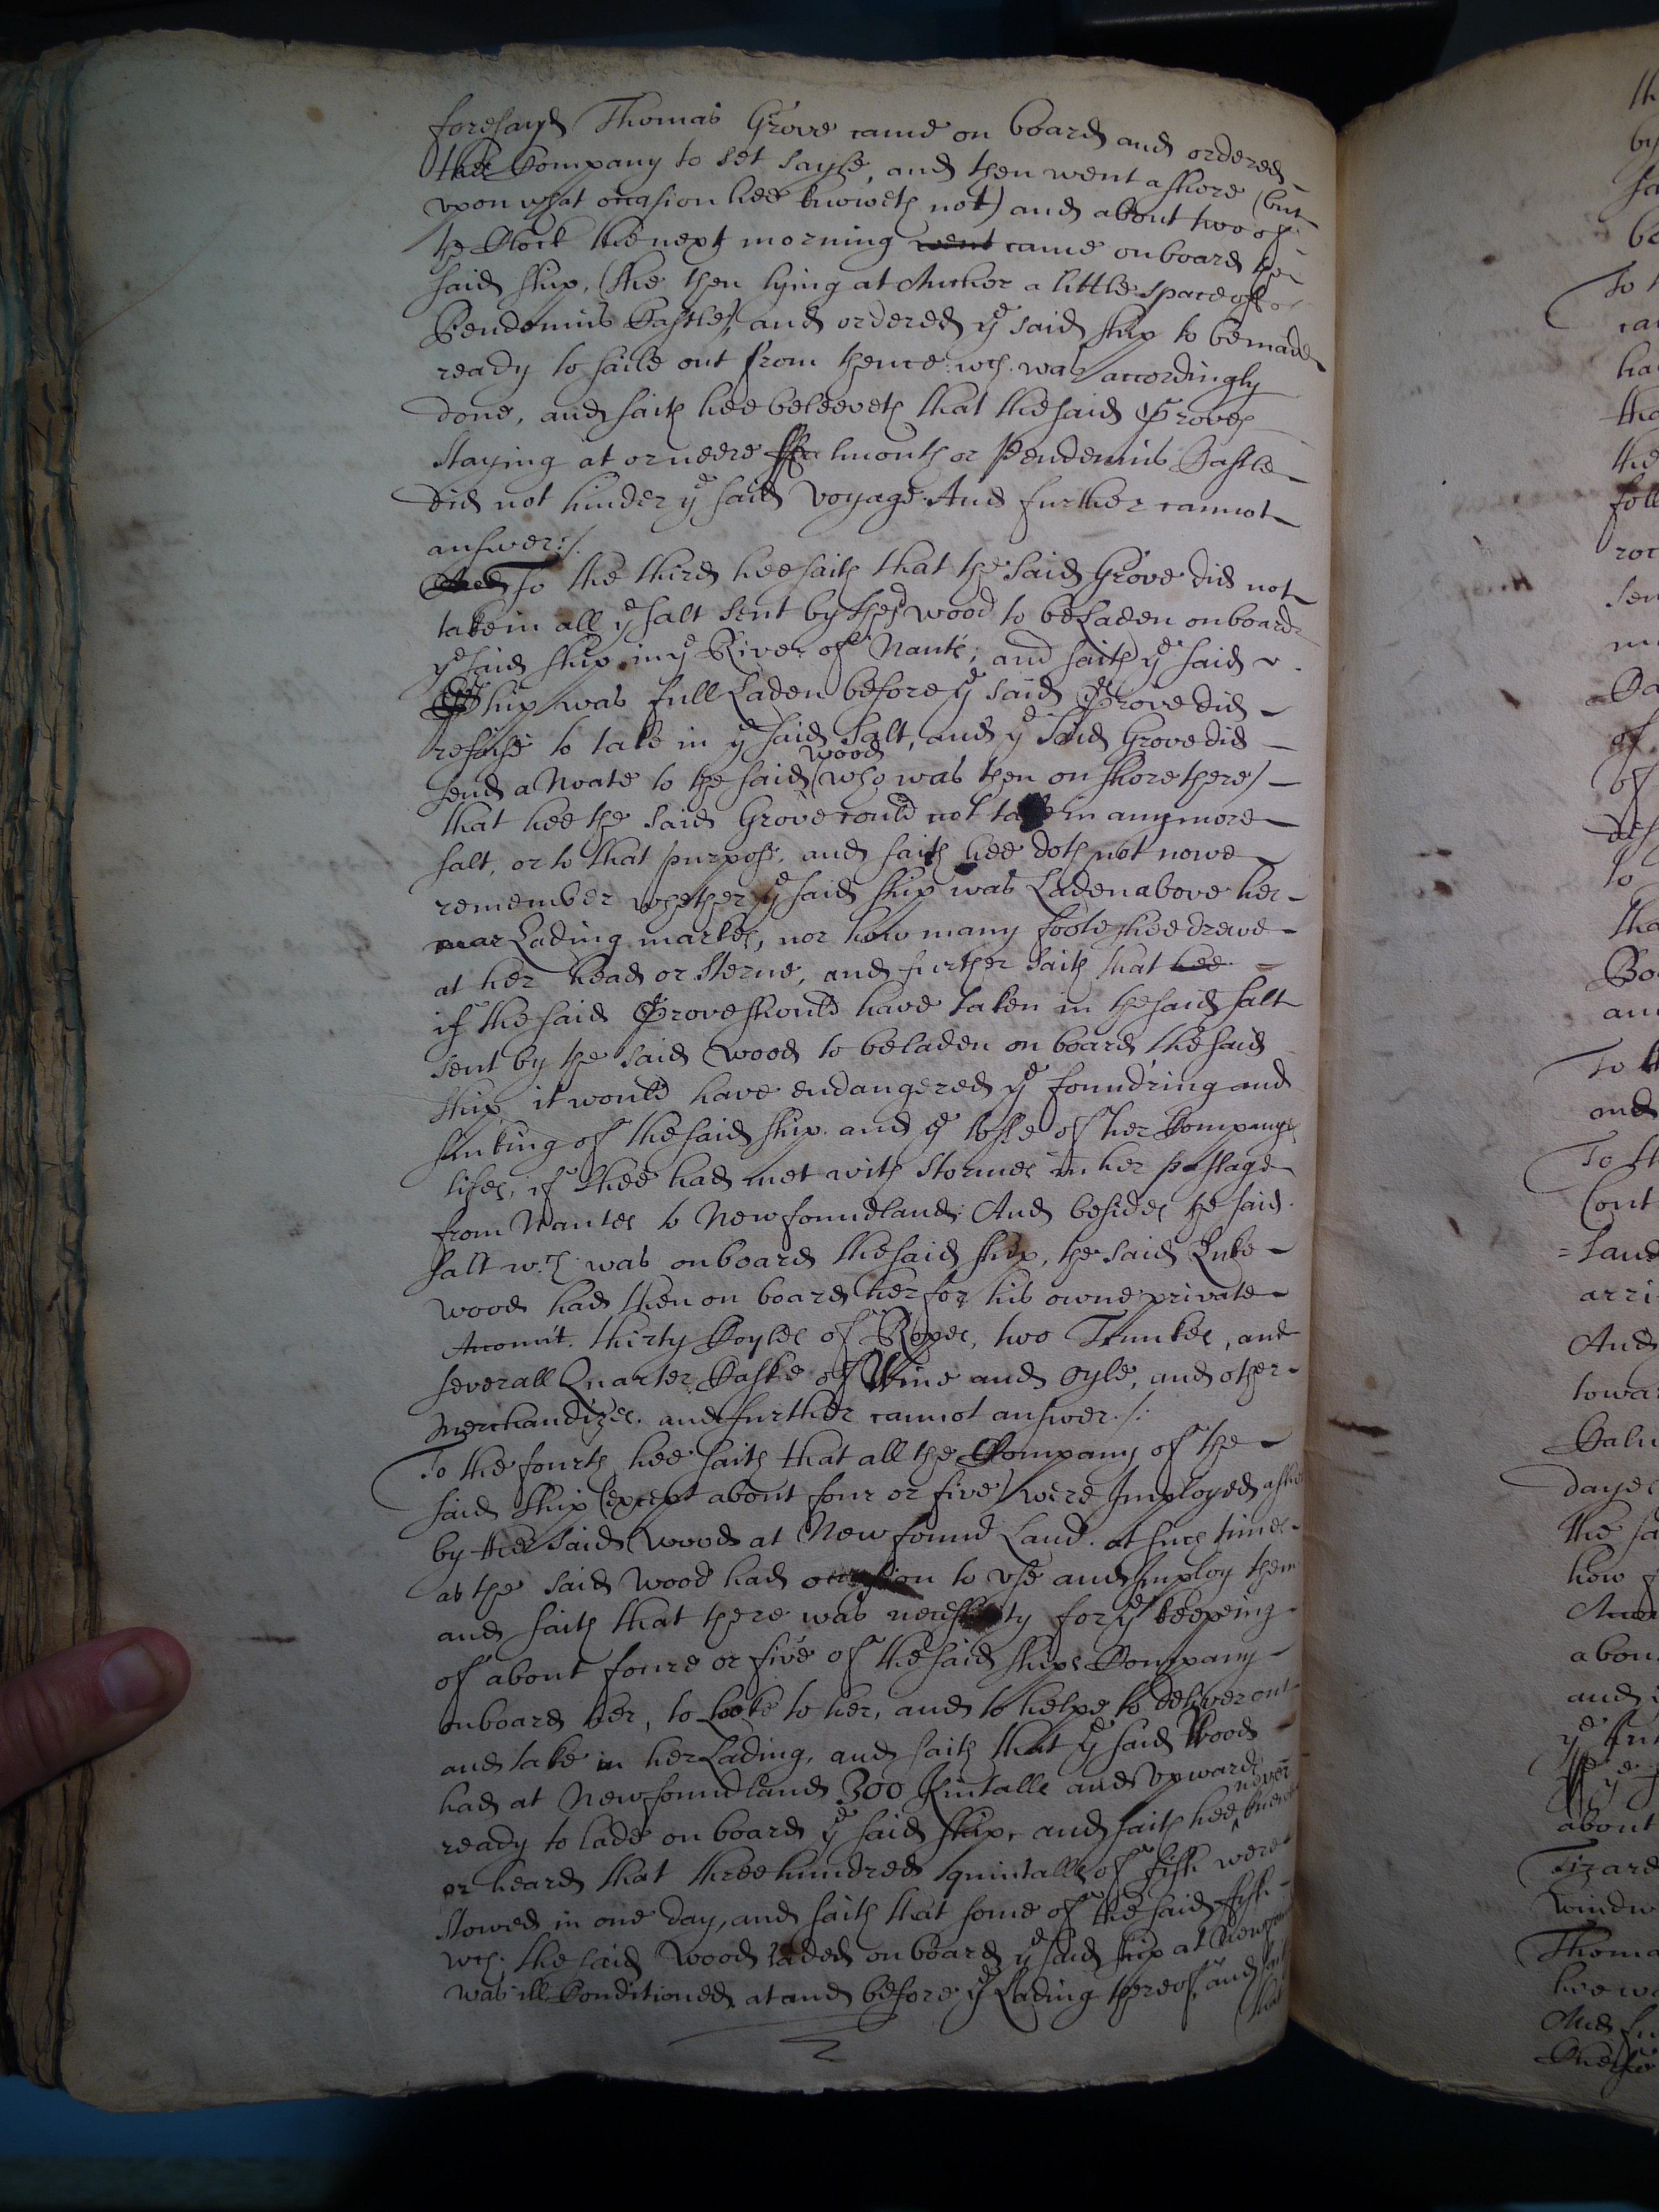 foresayd Thomas Grove came on board and ordered
the Company to set sayle, and then went a shore (but
upon what occasion hee knoweth not) and about two of
the Clock the next morning went came on board the
said ship, (she then lying at Anchor a little space off of
Pendennis Castle) and ordered ye said ship to be made
ready to saile out from thence wch. was accordingly
done, and saith hee beleeveth that the said Groves
staying at or neere ffalmouth or Pendennis Castle
did not hinder ye said voyage. And further cannot
answer:/.
And To the third hee saith that the said Grove did not
take in all ye salt sent by the sd wood to be Laden on board
ye said ship in ye River of Nants; and saith ye said
Ship was full Laden before ye said Grove did
refuse to take in ye said salt, and ye said Grove did
send a Noate to the said wood (who was then on shore there)
that hee the said Grove could not take in any more
salt, or to that purpose, and saith hee doth not nowe
remember whether ye said ship was Laden above her
Lading markes, nor how many foote shee drewe
at her head or sterne, and further saith that hee
if the said Grove should have taken in the said salt
sent by the said Wood to be laden on board the said
ship it would have endangered ye foundring and
sinking of the said ship and ye losse of her Companys
lifes, if shee had met with stormes in her passage
from Nantes to Newfoundland: And besides the said
salt wch. was on board the said ship, the said Luke
wood had then on board her for his owne private
Account. thirty Coyles of Ropes, two Trunkes, and
severall Quarter Caske of Wine and oyle, and other
Merchandizes. and further cannot answer./:
To the fourth hee saith that all the Company of the
said ship (except about four or five) were Imployed ashore
by the said Wood at New found Land. at such times
as the said Wood had occasion to use and Imploy them
and saith that there was necessity for ye keeping
of about foure or five of the said ships Company
onboard her, to Looke to her, and to helpe to deliver out
and take in her Lading, and saith that ye said Wood
had at Newfoundland 300 Kintalls and upwards
ready to lade on board ye said ship, and saith hee never knew
or heard that three hundred quintalls of fish were
stowed in one day, and saith that some of the said fish
wch. the said Wood laded on board ye said ship at
was ill Conditioned at and before ye Lading thereof, and saith
that